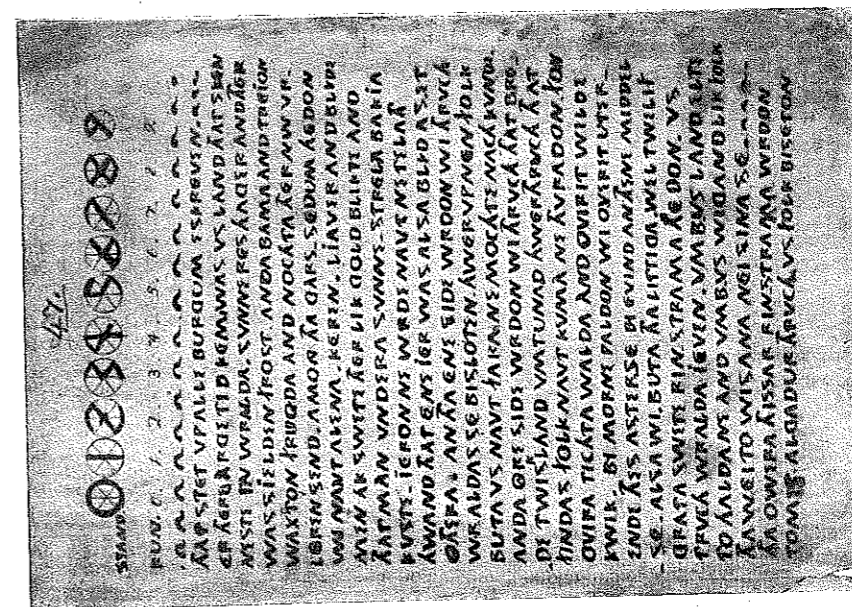 47.
STAND 0 1 2 3 4 5 6 7 8 9
RUN. 0. 1. 2. 3. 4. 5. 6. 7. 8. 9.
ÅAP STET VPALLE BURGUM ESKREVEN.
ER ÅERE ÀRGE TID KEM WAS VS LAND ÅAT SKEN
NESTE IN WRALDA. SUNNE RES HAGER AND ÅER
WAS SIELDEN FROST. ANDA BAMA AND TREION
WAXTON FRUGDA AND NOCHTA ÅER NW VR-
LEREN SEND. AMONG ÅA GARS-SEDUM HEDON
WI NAVT ALENA KEREN. LIAVER AND BLIDE
MEN AK SWETE ÅER LIK GOLD BLIKTE AND
ÅAT MAN VNDERA SUNNE-STRELA BAKIA
KUSTE. IERON NE WRDE NAVT NE TELAÅ
HWAND ÅAT ENE IER WAS ALSA BLID AS ET
OÅERA. AN ÅA ENE SIDE WRDON WI ÅRVCH
WRALDAS SE BISLOTEN HWERVP NEN FOLK
BUTA VS NAVT FARA NE MOCHTE NACH KVNDE.
ANDA ORE SIDE WRDON WI ÅRVCH ÅAT BRE-
DE TWISKLAND VMTUNAD HWERÅRVCH ÅAT
FINDAS FOLK NAVT KVMA NE ÅVRADON FON
OVIRA TICHTA WALDA AND OVIR IT WILDE
KWIK. BI MORNE PALDON WI OVIR IT UTER-
ENDE ÅES ASTERSE BI EVIND AN ÅENE MIDDEL
-SE. ALSA WI BUTA ÅA LITTIGA WEL TWELIF
GRATA SWETE RINSTRAMA HEDON. VS
ÅRVCH WRALDA IEVEN. VMB VS LAND ELTE
TO HALDANE AND VMB VS WIGANDLIK FOLK
ÅA WEI TO WISANA NEI SINA SE.
ÅA OWIRA ÅISSAR RINSTRAMA WRDON
TOMET ALGADUR ÅRVCH VS FOLK BISETON